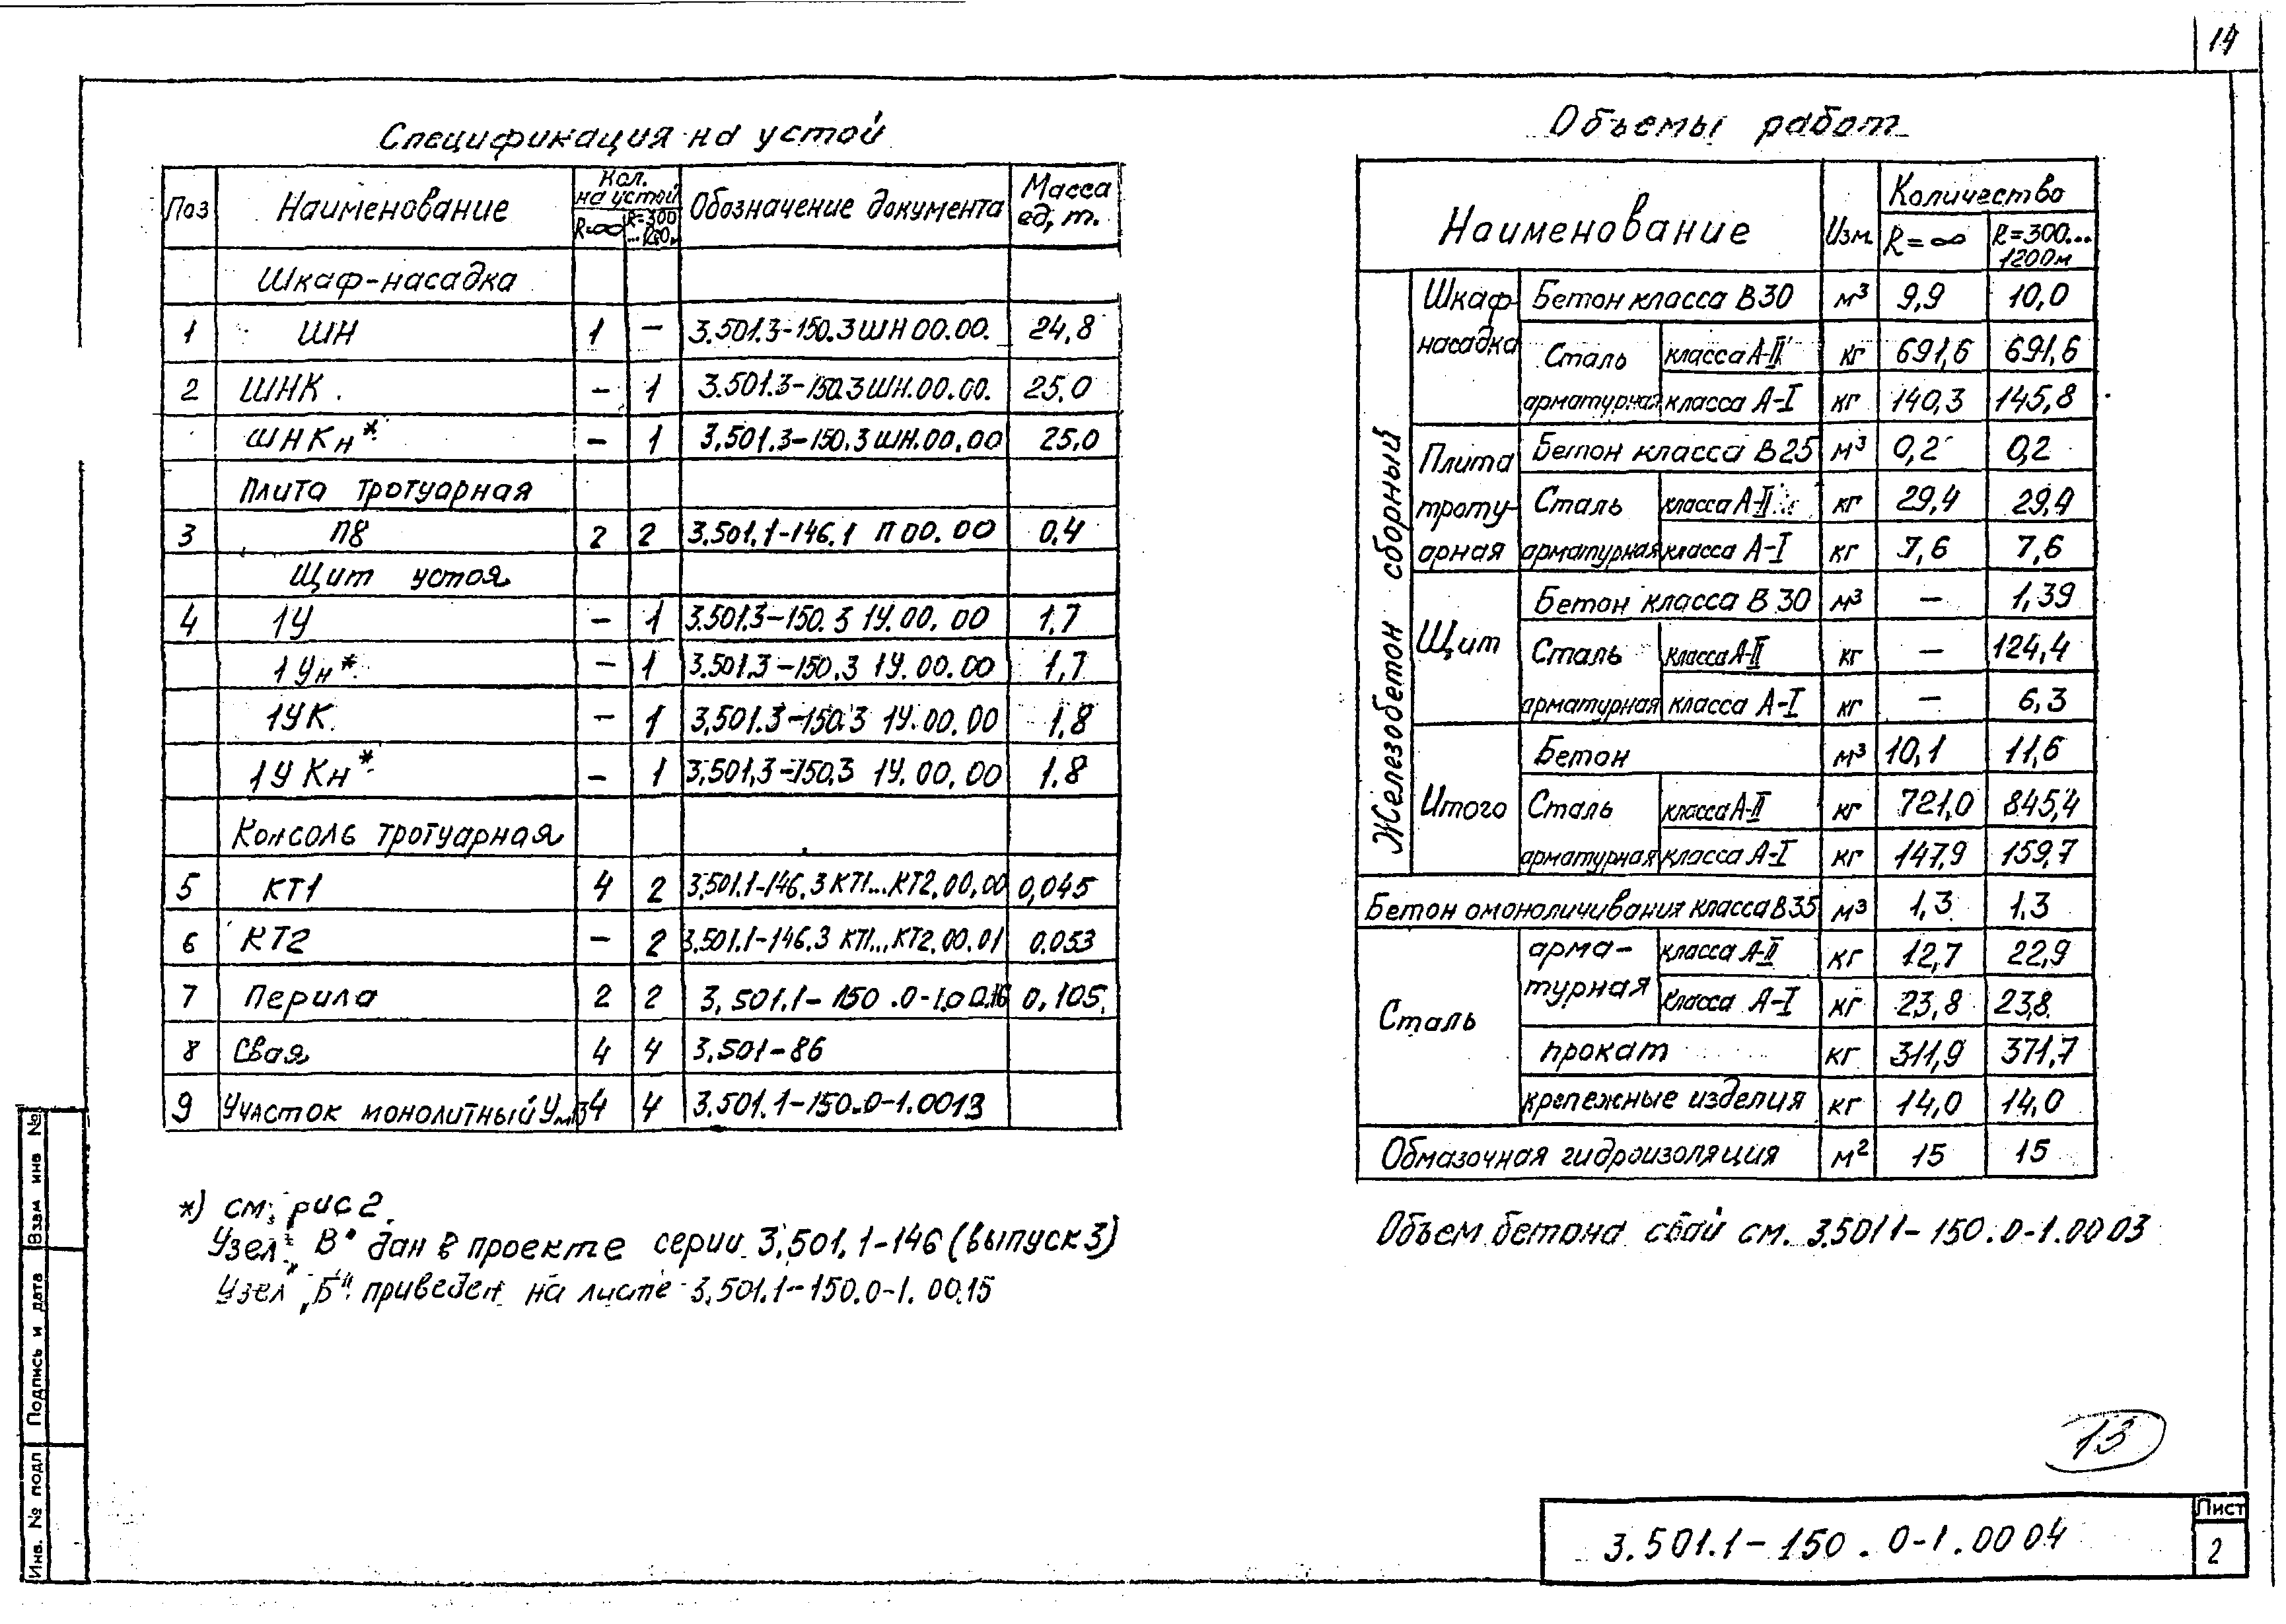 14
Спецификация на устой
Поз Наименование Кол. на устой Обозначение документа Масса ед, т.
R=∞ R=300
Шкаф-насадка
1 ШН 1 – 3.501.3-150.3 ШН 00.00. 24,8
2 ШНК . – 1 3.501.3-150.3 ШН.00.00. 25,0
ШНКн* – 1 3.501.3-150.3 ШН.00.00 25,0
Плита тротуарная
3 П8 2 2 3.501.1-146.1 П 00.00 0,4
Щит устоя
4 1У – 1 3.501.3-150.3 1У.00.00 1,7
1Ун* – 1 3.501.3-150.3 1У.00.00 1,7
1УК – 1 3.501.3-150.3 1У.00.00 1,8
1УКн* – 1 3.501.3-150.3 1У.00.00 1,8
Консоль тротуарная
5 КТ1 4 2 3.501.1-146.3 КТ1...КТ2.00.00 0,045
6 КТ2 – 2 3.501.1-146.3 КТ1...КТ2.00.01 0.053
7 Перила 2 2 3.501.1-150.0-1.00.16 0,105
8 Свая 4 4 3.501-86
9 Участок монолитный Ум13 4 4 3.501.1-150.0-1.0013
*) см. рис 2.
Узел „В" дан в проекте серии 3.501.1-146 (выпуск 3)
Узел „Б" приведен на листе 3.501.1-150.0-1.0015
Объемы работ
Наименование Изм. Количество
R=∞ R=300...1200м
Железобетон сборный
Шкаф насадка Бетон класса В30 м³ 9,9 10,0
Сталь арматурная класса А-II кг 691,6 691,6
класса А-I кг 140,3 145,8
Плита тротуарная Бетон класса В25 м³ 0,2 0,2
Сталь арматурная класса А-II кг 29,4 29,4
класса А-I кг 7,6 7,6
Щит Бетон класса В30 м³ – 1,39
Сталь арматурная класса А-II кг – 124,4
класса А-I кг – 6,3
Итого Бетон м³ 10,1 11,6
Сталь арматурная класса А-II кг 721,0 845,4
класса А-I кг 147,9 159,7
Бетон омоноличивания класса В35 м³ 1,3 1.3
Сталь арматурная класса А-II кг 12,7 22,9
класса А-I кг 23,8 23,8
прокат кг 311,9 371,7
крепежные изделия кг 14,0 14,0
Обмазочная гидроизоляция м² 15 15
Объем бетона свай см. 3.501.1-150.0-1.0003
13
3.501.1-150.0-1.0004
Лист
2
Взам инв №
Подпись и дата
Инв. № подл